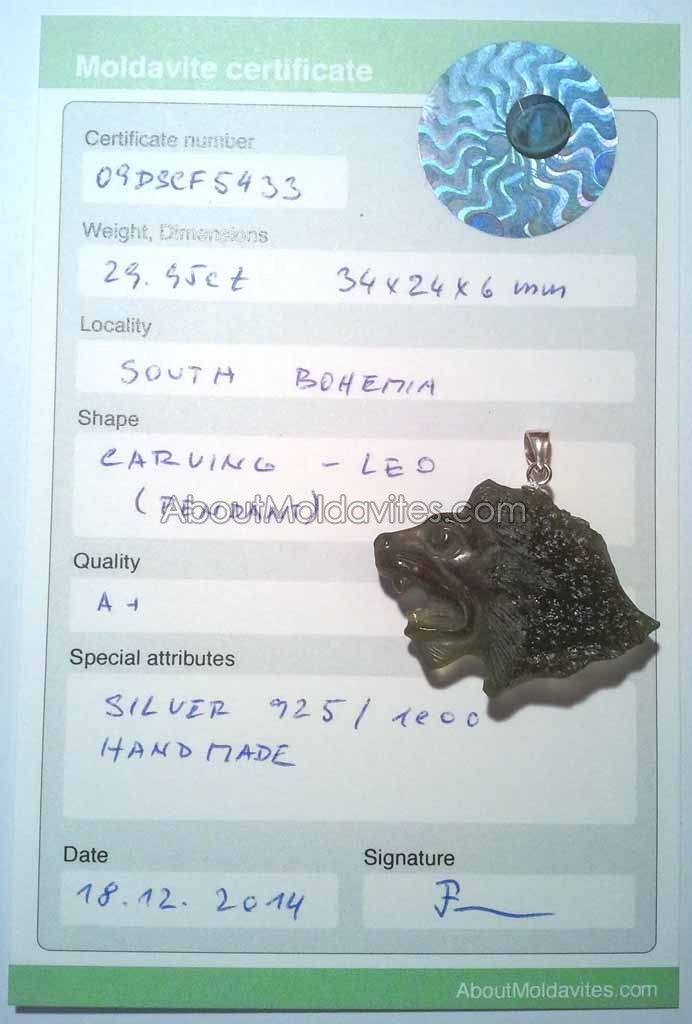 Moldavite certificate
Certificate number
09DSCF5433
Weight, Dimensions
29.95ct 34x24x6 mm
Locality
SOUTH BOHEMIA
Shape
CARVING - LEO
(PENDANT)
AboutMoldavites.com
Quality
A+
Special attributes
SILVER 925/1000
HANDMADE
Date
18.12.2014
Signature
AboutMoldavites.com